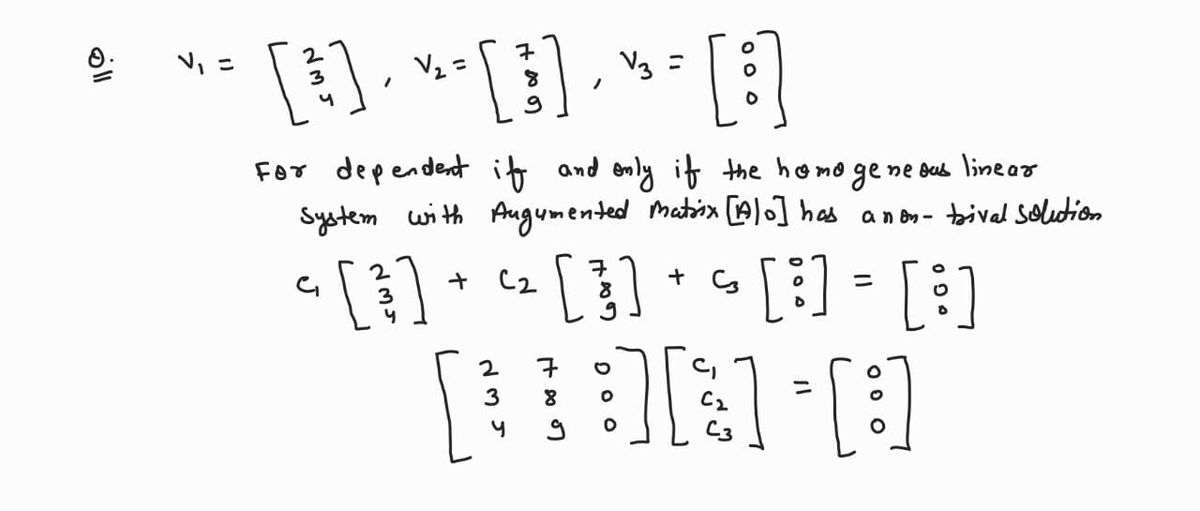 Q. V₁ = [2 3 4], V₂ = [7 8 9], V₃ = [0 0 0]
For dependent if and only if the homogeneous linear
system with Augumented Matrix [A|0] has a non-trival solution
C₁ [2 3 4] + C₂ [7 8 9] + C₃ [0 0 0] = [0 0 0]
[2 7 0
3 8 0
4 9 0] [C₁ C₂ C₃] = [0 0 0]